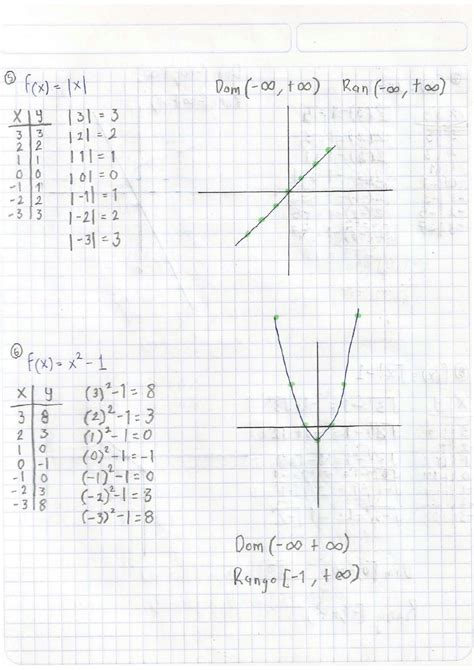 ⑤ F(x) = |x|
Dom (-∞, +∞) Ran (-∞, +∞)
x y
3 3
2 2
1 1
0 0
-1 1
-2 2
-3 3
|3| = 3
|2| = 2
|1| = 1
|0| = 0
|-1| = 1
|-2| = 2
|-3| = 3
⑥ F(x) = x² - 1
x y
3 8
2 3
1 0
0 -1
-1 0
-2 3
-3 8
(3)² -1 = 8
(2)² -1 = 3
(1)² -1 = 0
(0)² -1 = -1
(-1)² -1 = 0
(-2)² -1 = 3
(-3)² -1 = 8
Dom (-∞ +∞)
Rango [-1, +∞)